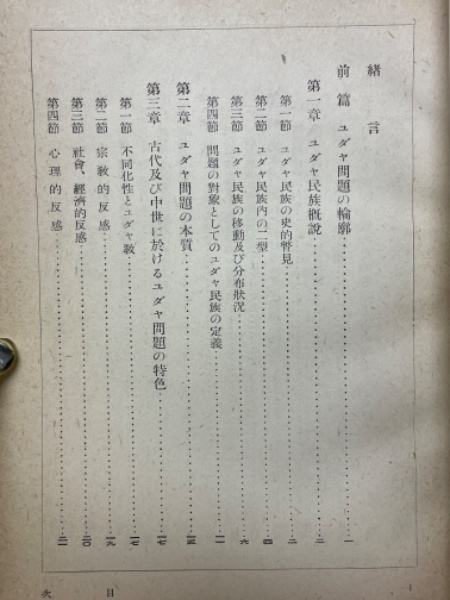 緒言
前篇 ユダヤ問題の輪廓…一
第一章 ユダヤ民族概說…二
第一節 ユダヤ民族の史的瞥見…二
第二節 ユダヤ民族內の二型…四
第三節 ユダヤ民族の移動及び分布狀況…六
第四節 問題の對象としてのユダヤ民族の定義…一一
第二章 ユダヤ問題の本質…一五
第三章 古代及び中世に於けるユダヤ問題の特色…一七
第一節 不同化性とユダヤ敎…一七
第二節 宗敎的反感…一九
第三節 社會、經濟的反感…二〇
第四節 心理的反感…二一
目次
一